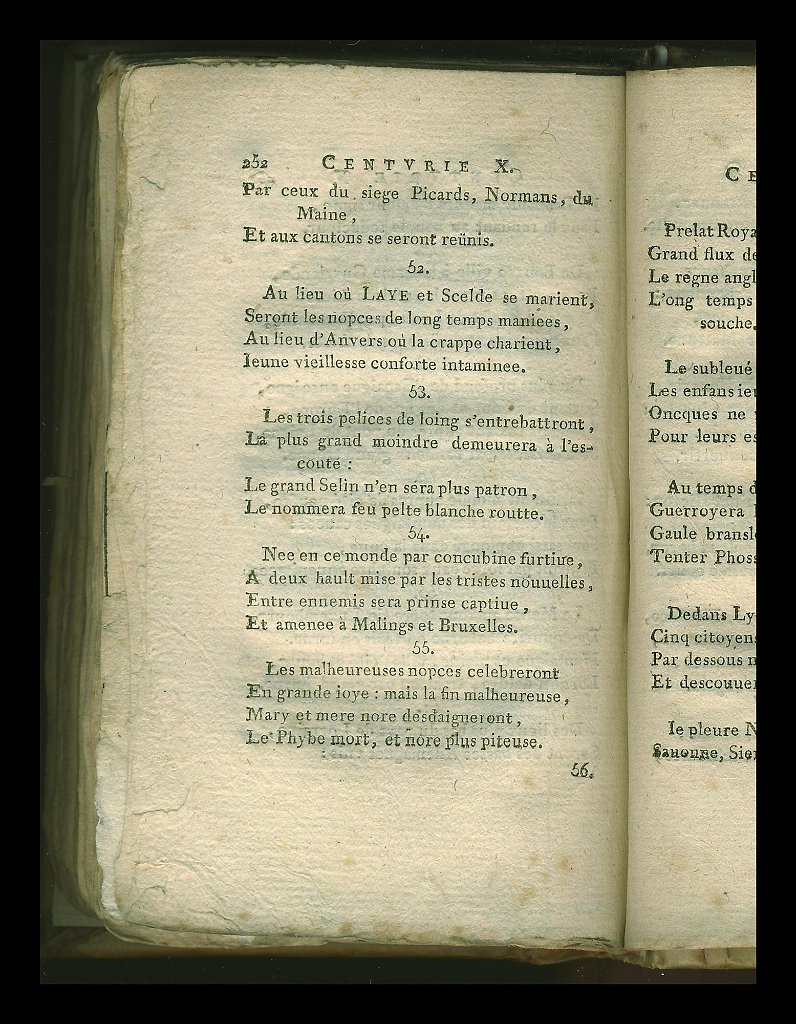 252 CENTVRIE X.
Par ceux du siege Picards, Normans, du
Maine,
Et aux cantons se seront reünis.
52.
Au lieu où LAYE et Scelde se marient,
Seront les nopces de long temps maniees,
Au lieu d'Anvers où la crappe charient,
Ieune vieillesse conforte intaminee.
53.
Les trois pelices de loing s'entrebattront,
La plus grand moindre demeurera à l'es-
coute :
Le grand Selin n'en sera plus patron,
Le nommera feu pelte blanche routte.
54.
Nee en ce monde par concubine furtiue,
A deux hault mise par les tristes nouuelles,
Entre ennemis sera prinse captiue,
Et amenee à Malings et Bruxelles.
55.
Les malheureuses nopces celebreront
En grande ioye : mais la fin malheureuse,
Mary et mere nore desdaigneront,
Le Phybe mort, et nore plus piteuse.
56.
CE
Prelat Roya
Grand flux de
Le regne angl
L'ong temps
souche.
Le subleué
Les enfans ieu
Oncques ne
Pour leurs es
Au temps d
Guerroyera
Gaule bransl
Tenter Phoss
Dedans Ly
Cinq citoyens
Par dessous n
Et descouue
Ie pleure N
Sauonne, Sie